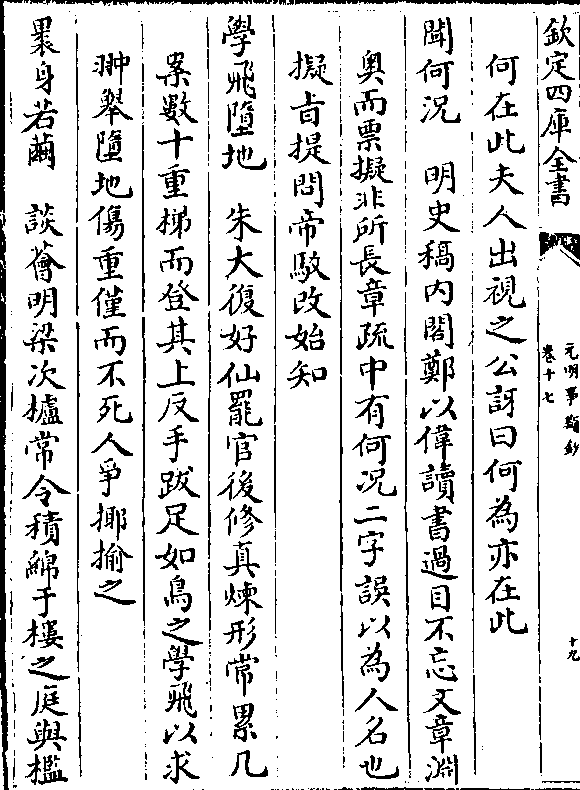 欽定四庫全書
元明事類鈔
卷十七
十九
何在此夫人出視之公訝曰何為亦在此
闕何況　明史稿内閣鄭以偉讀書過目不忘文章淵
奥而票擬非所長章疏中有何況二字誤以為人名也
擬㫖提問帝駁改始知
學飛墮地　朱大復好仙罷官後修真煉形常累几
案數十重梯而登其上反手跋足如鳥之學飛以求
翀舉墮地傷重僅而不死人爭揶揄之
裹身若繭　談薈明梁次攄常令積綿于樓之庭與檻